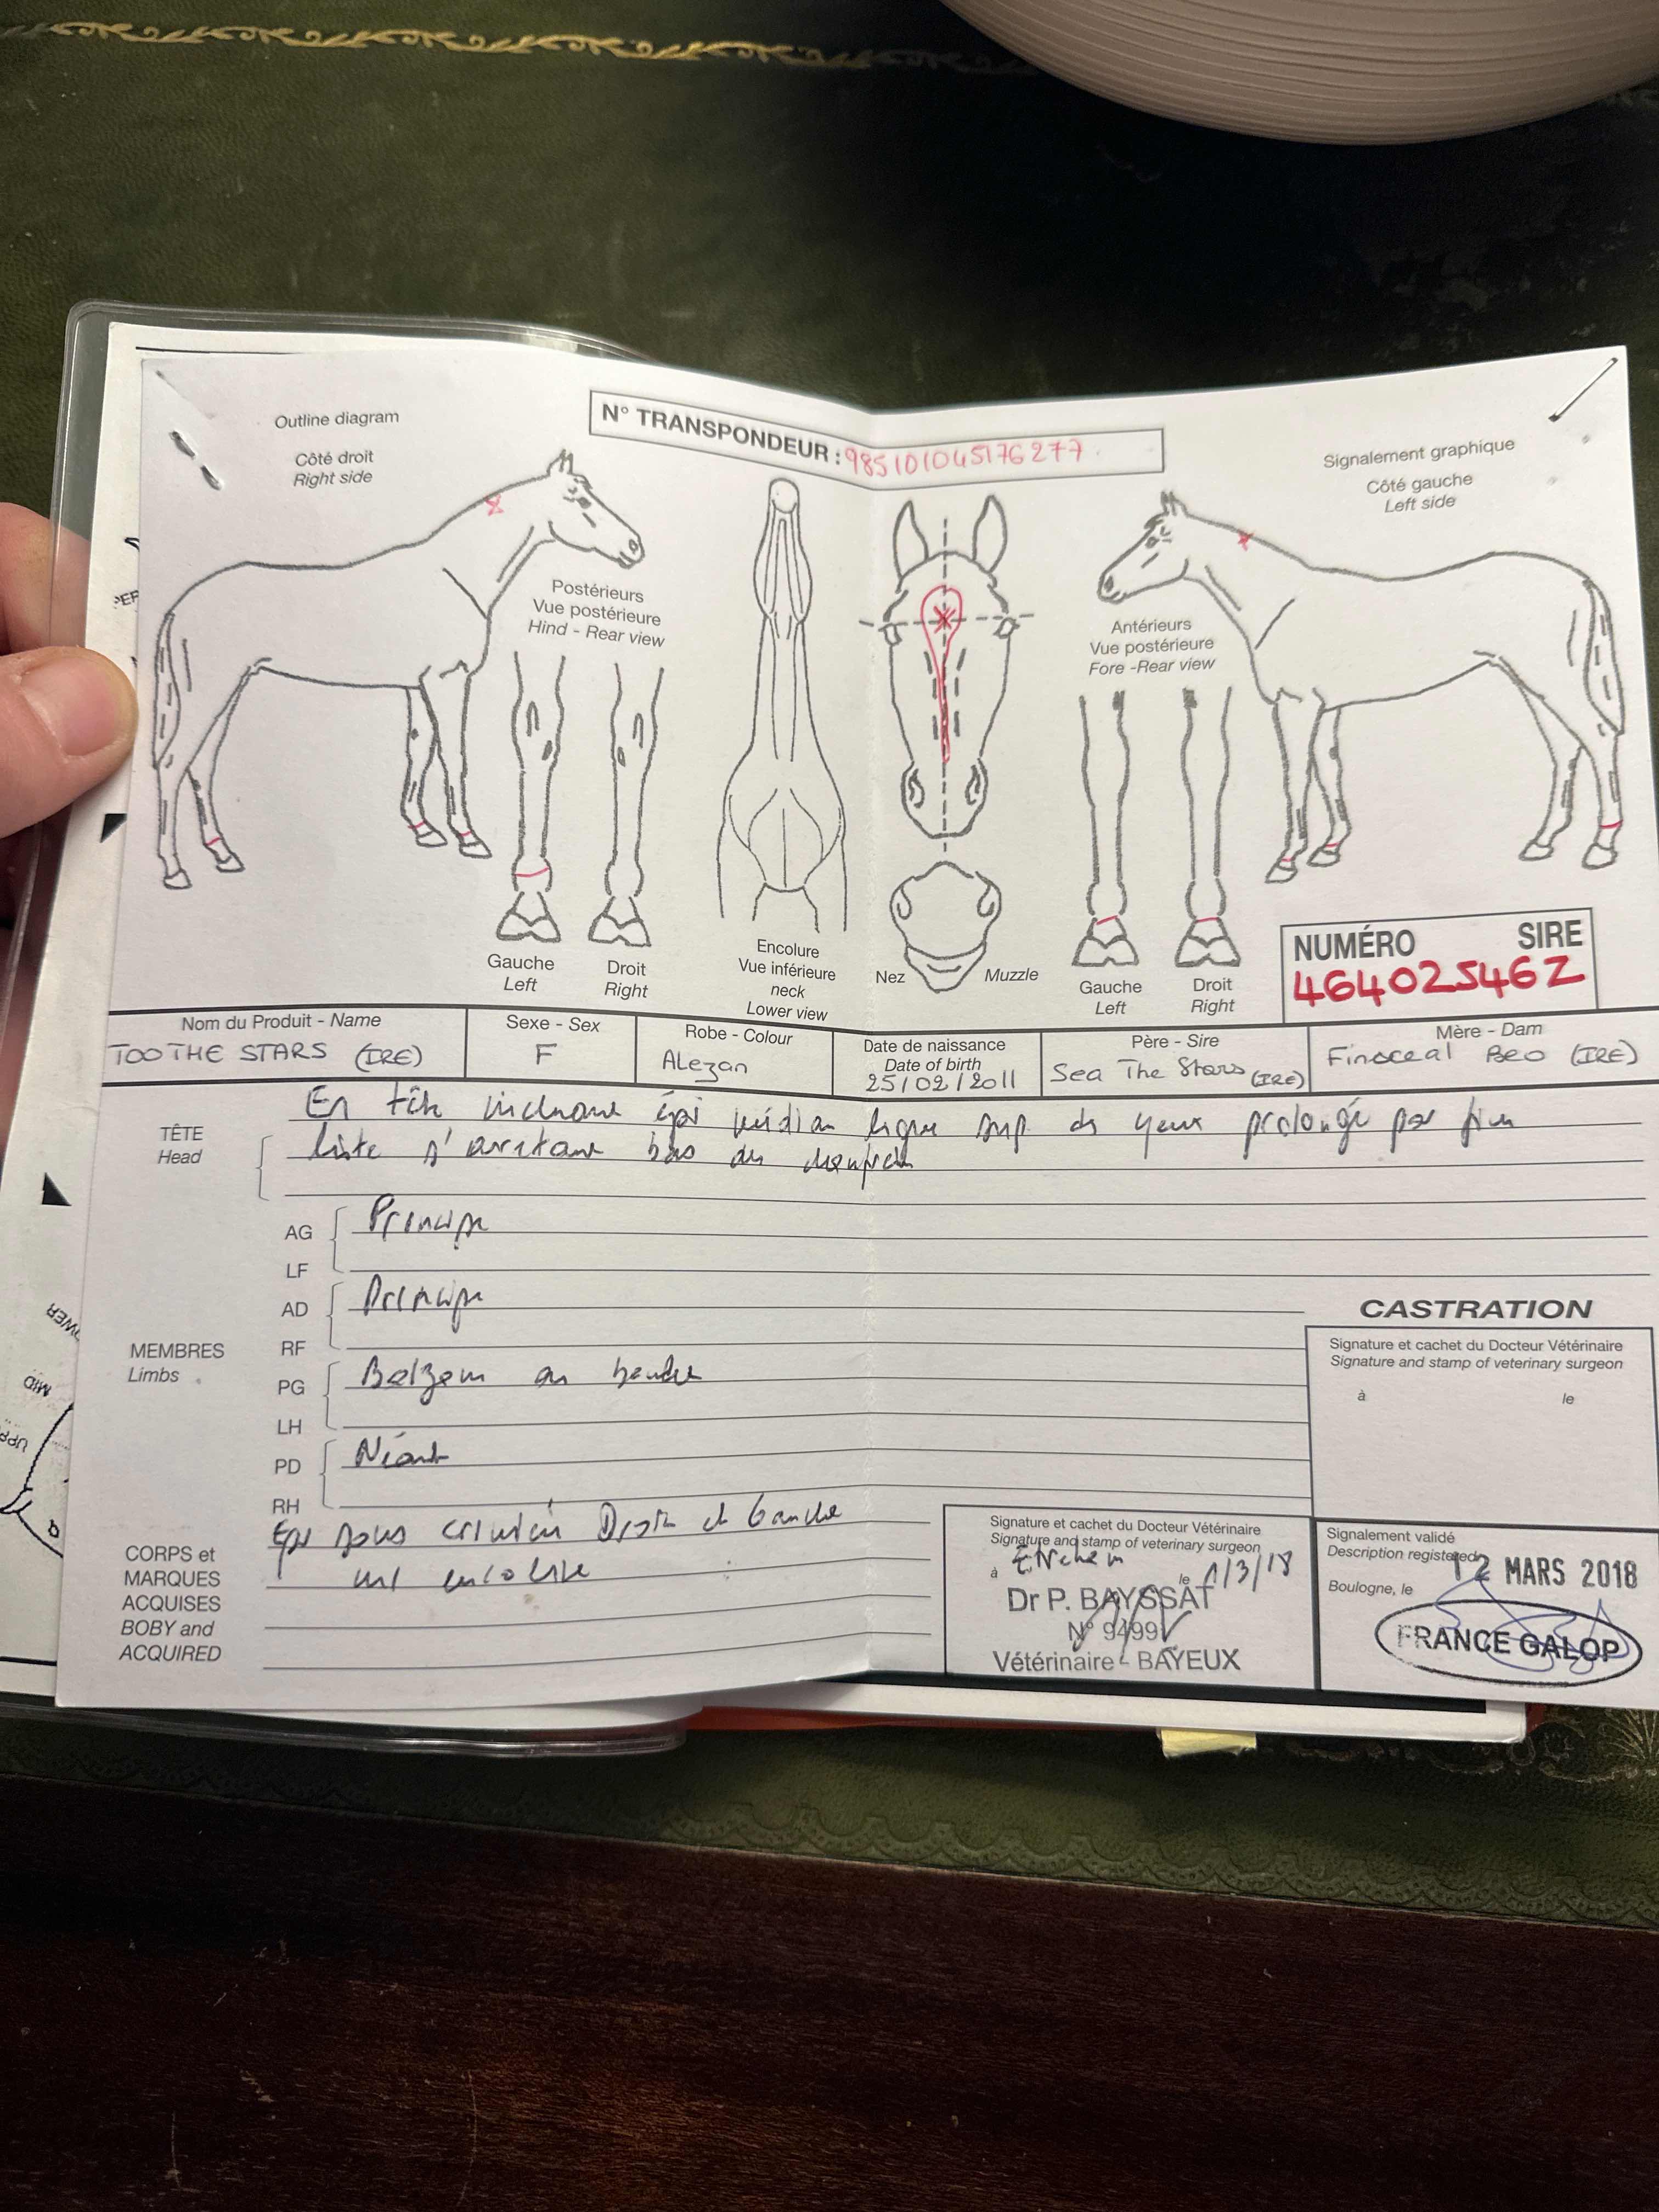 Outline diagram
Côté droit
Right side
N° TRANSPONDEUR : 985101045176277
Signalement graphique
Côté gauche
Left side
Postérieurs
Vue postérieure
Hind - Rear view
Antérieurs
Vue postérieure
Fore -Rear view
Gauche
Left
Droit
Right
Encolure
Vue inférieure
neck
Lower view
Nez
Muzzle
Gauche
Left
Droit
Right
NUMÉRO SIRE
46402546Z
Nom du Produit - Name
TOO THE STARS (IRE)
Sexe - Sex
F
Robe - Colour
Alezan
Date de naissance
Date of birth
25/02/2011
Père - Sire
Sea The Stars (IRE)
Mère - Dam
Finsceal Beo (IRE)
TÊTE
Head
En tête incluant épi médian ligne sup des yeux prolongé par fine
liste s'arretant bas du chanfrein
MEMBRES
Limbs
AG
LF
Principe
AD
RF
Principe
PG
LH
Balzane
PD
RH
Néant
CORPS et
MARQUES
ACQUISES
BOBY and
ACQUIRED
Epi sous crinière Droite et Gauche
encolure
CASTRATION
Signature et cachet du Docteur Vétérinaire
Signature and stamp of veterinary surgeon
à le
Signature et cachet du Docteur Vétérinaire
Signature and stamp of veterinary surgeon
à le 1/3/18
Dr P. BAYSSAT
N° 9499
Vétérinaire - BAYEUX
Signalement validé
Description registered
Boulogne, le 12 MARS 2018
FRANCE GALOP
MID